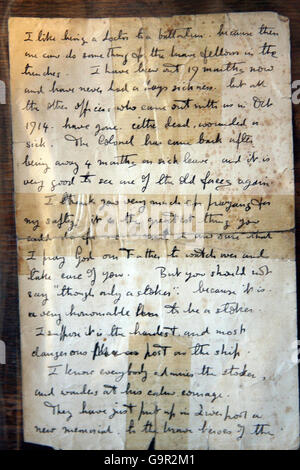 I like being a doctor to a battalion. because then
one can do something for the brave fellows in the
trenches. I have been out 19 months now
and have never had a days sickness. but all
the other officers who came out with us in Oct
1914. have gone. either dead, wounded or
sick. The Colonel has come back after
being away 4 months on sick leave. and it is
very good to see one of the old faces again.
I thank you very much for praying for
my safety. it is the greatest thing you
could I am sure that
I pray God our Father to watch over and
take care of you. But you should not
say "though only a stoker": because it is
a very honourable to be a stoker.
I suppose it is the hardest and most
dangerous post on the ship.
I know everybody admires the stoker,
and wonders at his calm courage.
They have just put up in Liverpool a
new memorial. to the brave heroes of the
alamy
Image ID: G9R2M1
www.alamy.com